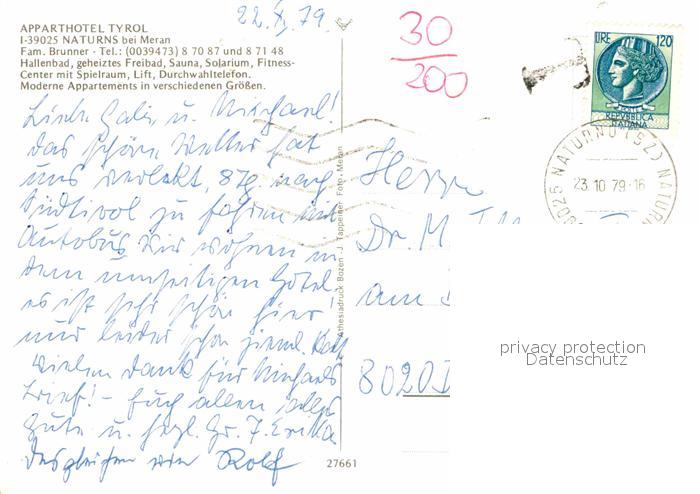 APPARTHOTEL TYROL
I-39025 NATURNS bei Meran
Fam. Brunner - Tel.: (0039473) 8 70 87 und 8 71 48
Hallenbad, geheiztes Freibad, Sauna, Solarium, Fitness-
Center mit Spielraum, Lift, Durchwahltelefon.
Moderne Appartements in verschiedenen Größen.
22. X. 79.
Liebe Gabi u. Michael!
Das schöne Wetter hat
uns verlockt, 8 Tg. nach
Südtirol zu fahren mit
Autobus. Wir wohnen in
dem umseitigen Hotel,
es ist sehr schön hier!
nur leider schon zieml. kalt
Vielen Dank für Michaels
Brief! - Euch allen alles
Gute u. herzl. Gr. Erika
Desgleichen Rolf
Athesiadruck Bozen - J. Tappeiner Foto - Meran
27661
30
200
T
LIRE 120
REPVBBLICA
ITALIANA
39025 NATURNO (BZ) NATURN
23.10 79-16
Herrn
Dr. M.
am
8020
privacy protection
Datenschutz